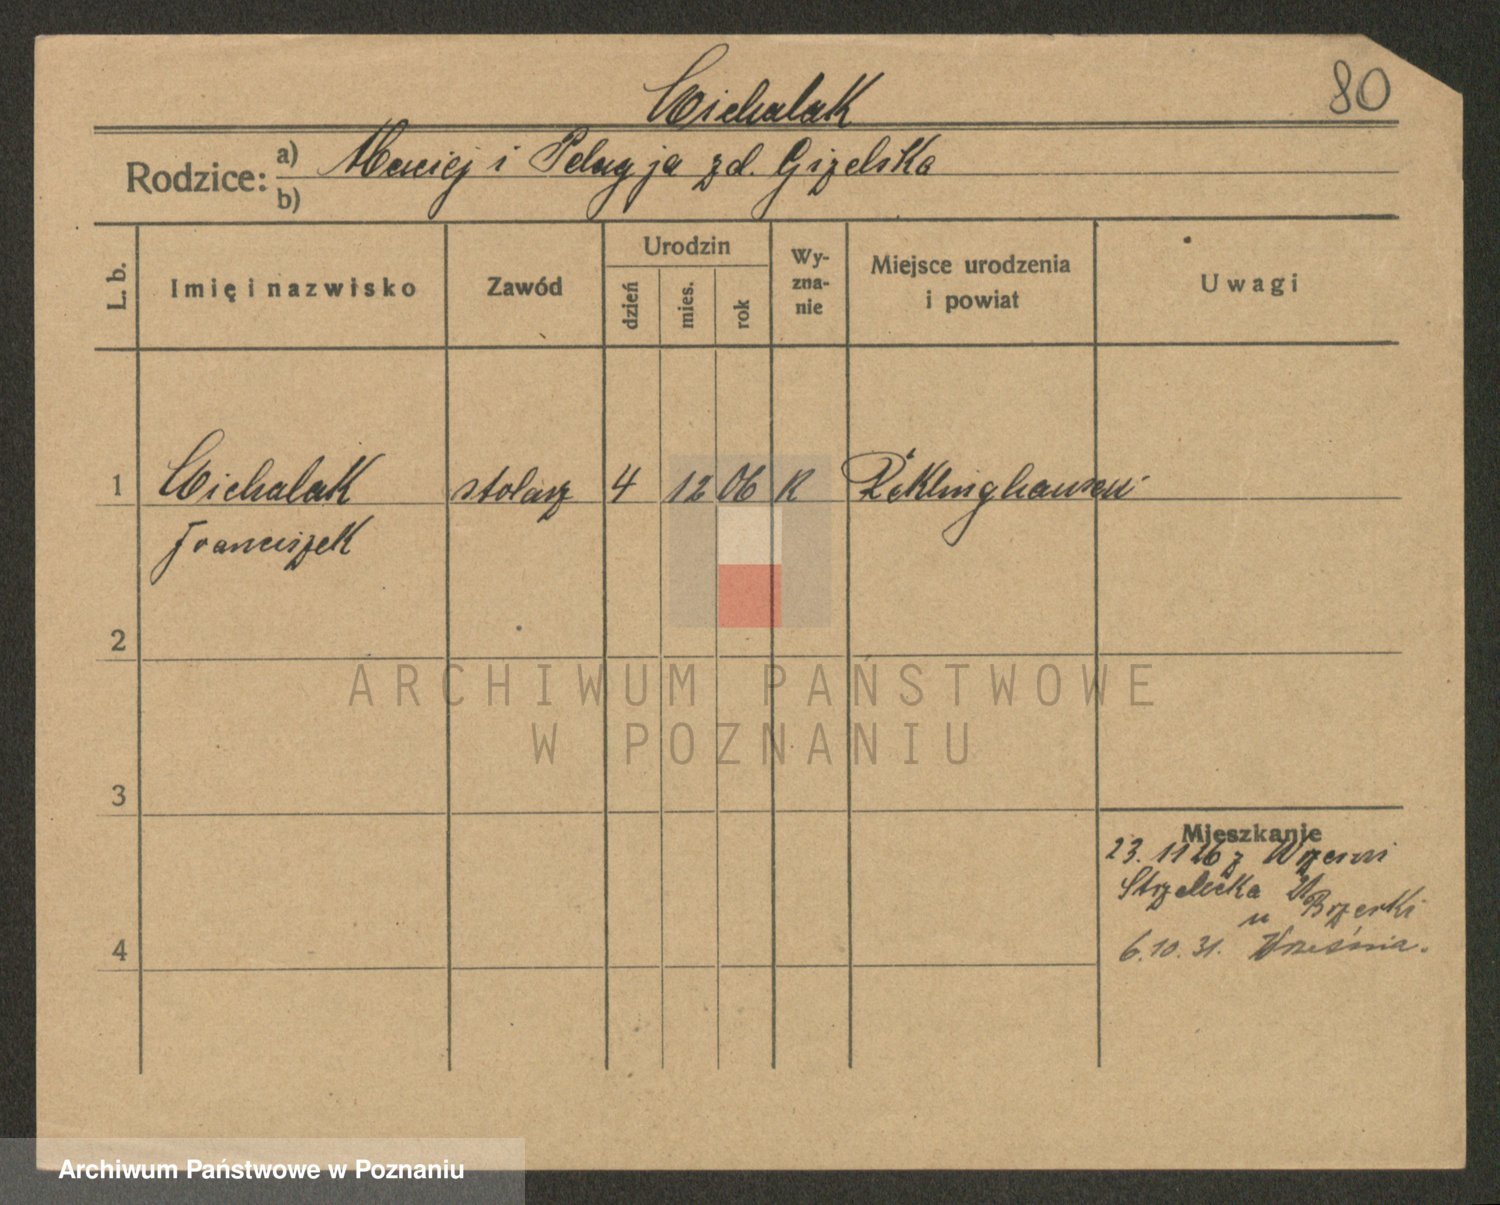 80
Michalak
Rodzice: a) Maciej i Pelagja zd. Gizelska
b)
L. b. Imię i nazwisko Zawód Urodzin dzień mies. rok Wyznanie Miejsce urodzenia i powiat Uwagi
1 Michalak stolarz 4 12 06 R Reklinghausen
Franciszek
2
3
4
Mieszkanie
23. 11 26 z Wrześni
Strzelecka
u
6.10.31. Września.
ARCHIWUM PAŃSTWOWE
W POZNANIU
Archiwum Państwowe w Poznaniu